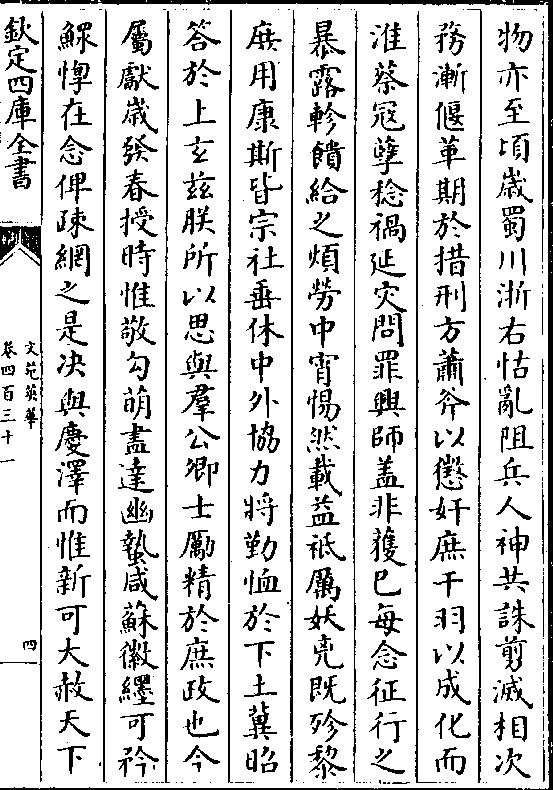 物亦至頃歲蜀川浙右怙亂阻兵人神共誅剪滅相次
務漸偃革期於措刑方蕭斧以懲奸庶干羽以成化而
淮蔡冦孽稔禍延灾問罪興師盖非獲已每念征行之
暴露軫饋給之煩勞中宵惕然載益祗厲妖兇既殄黎
庶用康斯皆宗社垂休中外協力将勤恤於下土冀昭
答於上玄兹朕所以思與羣公卿士勵精於庶政也今
屬獻歲發春授時惟敬勾萌盡達幽蟄咸蘇徽纆可矜
鰥惸在念俾疎網之是决與慶澤而惟新可大赦天下
欽定四庫全書
文苑英華
卷四百三十一
四